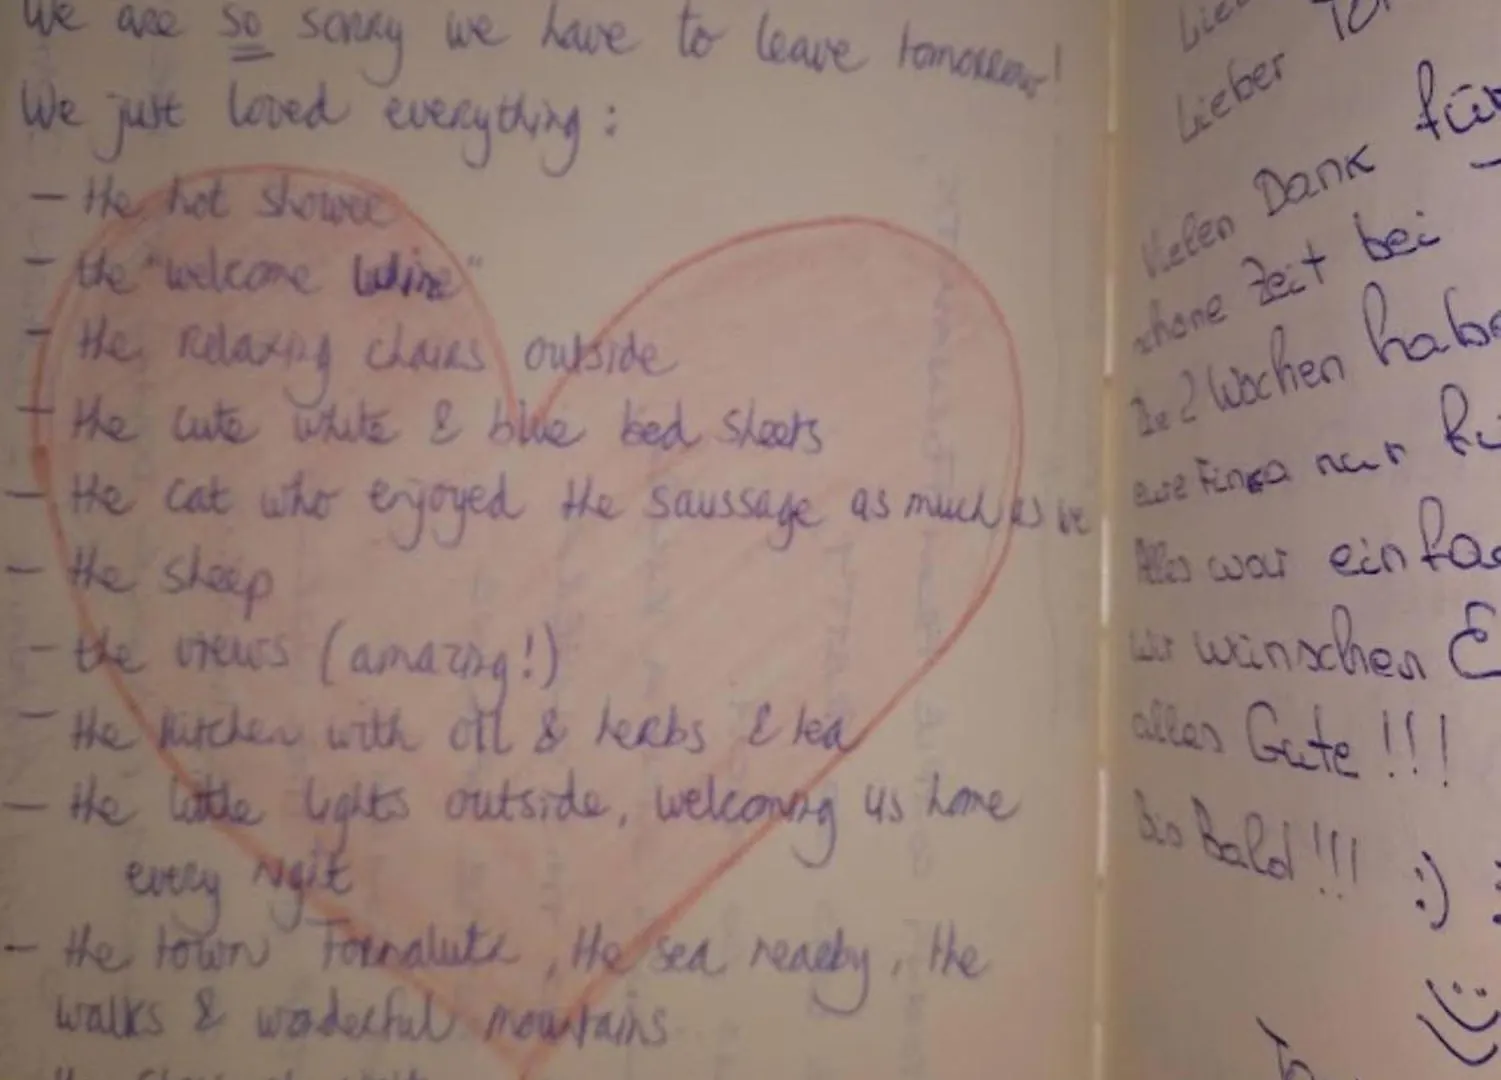 We are so sorry we have to leave tomorrow!
We just loved everything:
- the hot shower
- the "welcome wine"
- the relaxing chairs outside
- the cute white & blue bed sheets
- the cat who enjoyed the saussage as much as we
- the sheep
- the views (amazing!)
- the kitchen with oil & herbs & tea
- the little lights outside, welcoming us home
every night
- the town Fornalutx, the sea nearby, the
walks & wonderful mountains
Lieber
Vielen Dank für
schöne Zeit bei
Die 2 Wochen habe
eure Finca nur
Alles war einfac
wir wünschen E
alles Gute!!!
bis Bald!!! :)